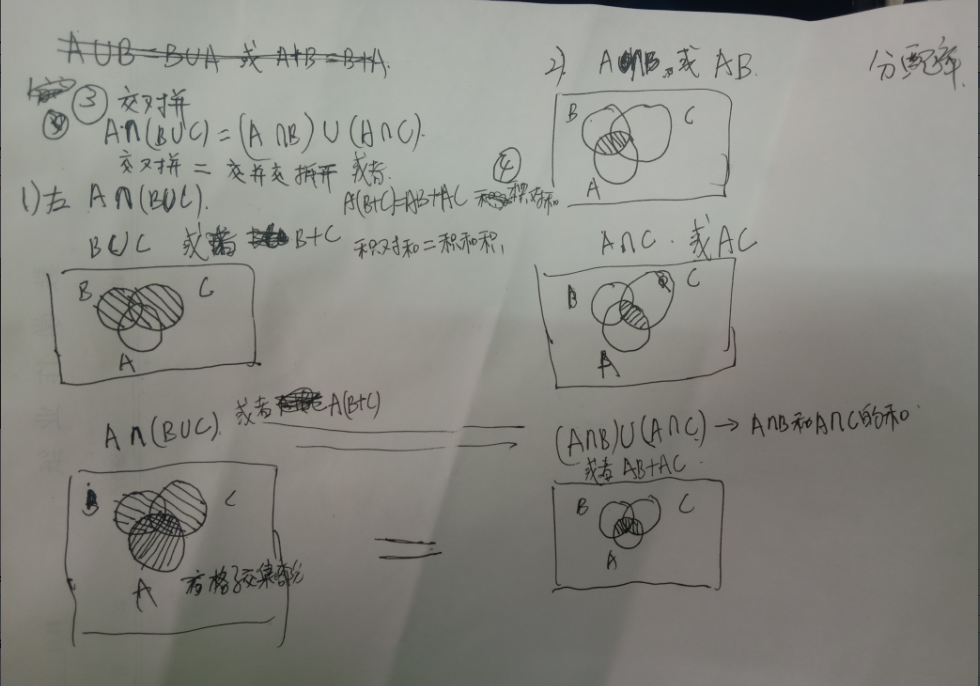 A∪B=B∪A 或 A+B=B+A.
③ 交对拼
A∩(B∪C)=(A∩B)∪(A∩C).
交对拼 = 交并交 拆开 或者.
④
A(B+C)=AB+AC
积对和=积和积,
1)左 A∩(B∪C).
B∪C 或者 B+C
B C
A
A∩(B∪C). 或者 A(B+C)
B C
A 有格子交集部分
=
2). A∩B, 或 AB.
分配率.
B C
A
A∩C. 或 AC
B C
A
(A∩B)∪(A∩C) → A∩B和A∩C的和
或者 AB+AC.
B C
A